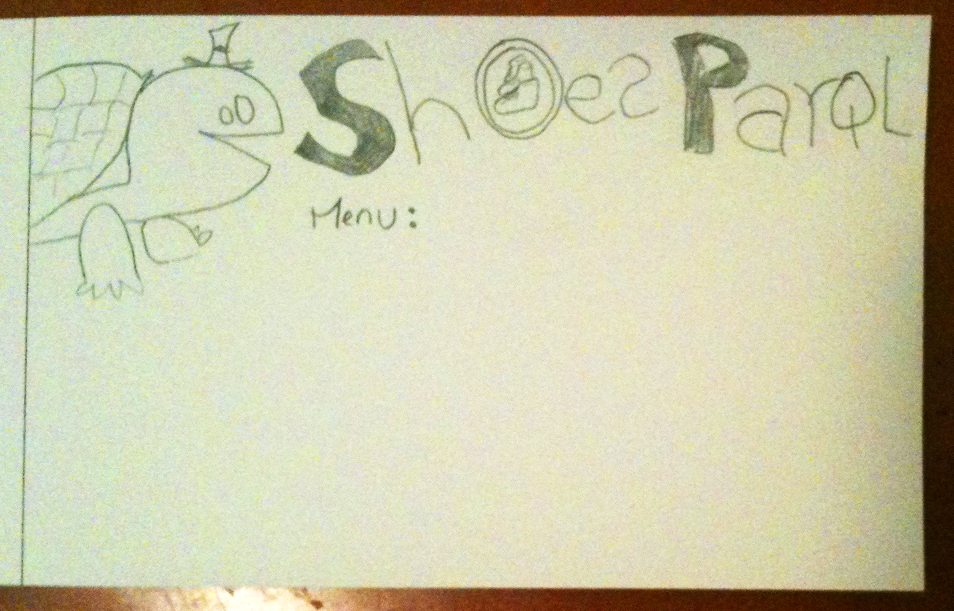 Shoes ParQL
Menu: